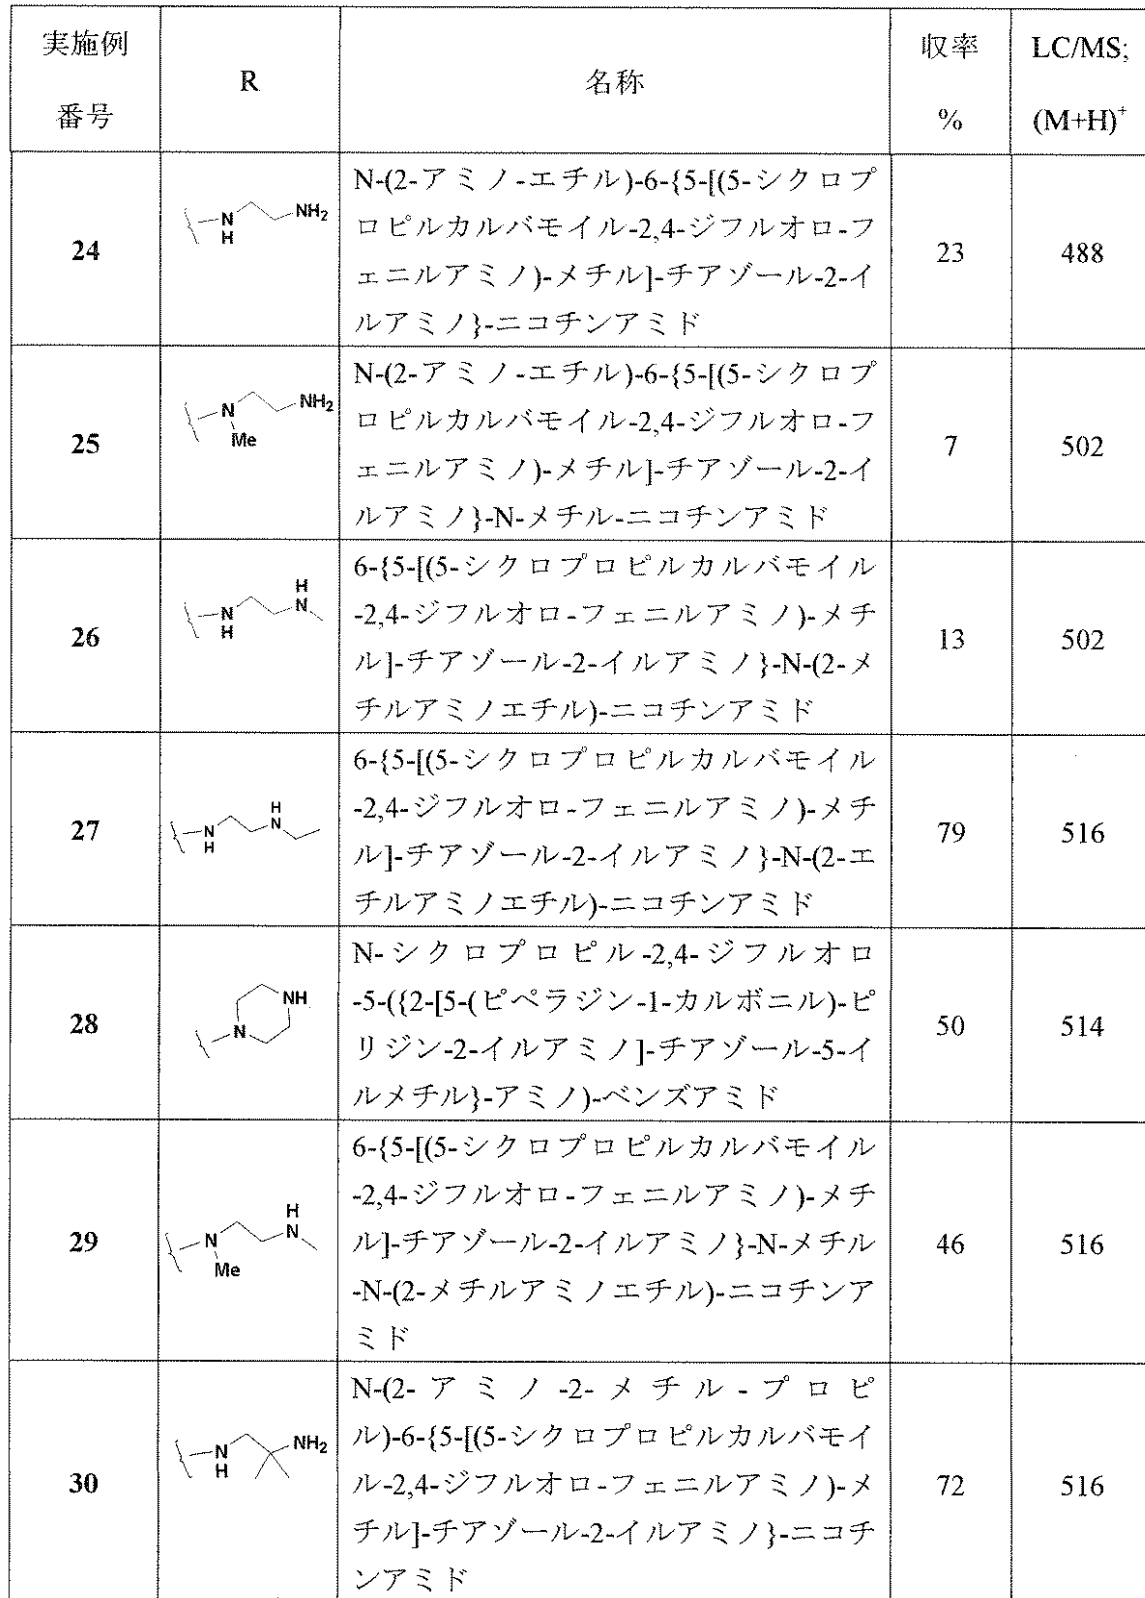 実施例
番号
R
名称
収率
%
LC/MS;
(M+H)+
24
N
H
NH2
N-(2-アミノ-エチル)-6-{5-[(5-シクロプ
ロピルカルバモイル-2,4-ジフルオロ-フ
ェニルアミノ)-メチル]-チアゾール-2-イ
ルアミノ}-ニコチンアミド
23
488
25
N
Me
NH2
N-(2-アミノ-エチル)-6-{5-[(5-シクロプ
ロピルカルバモイル-2,4-ジフルオロ-フ
ェニルアミノ)-メチル]-チアゾール-2-イ
ルアミノ}-N-メチル-ニコチンアミド
7
502
26
N
H
H
N
6-{5-[(5-シクロプロピルカルバモイル
-2,4-ジフルオロ-フェニルアミノ)-メチ
ル]-チアゾール-2-イルアミノ}-N-(2-メ
チルアミノエチル)-ニコチンアミド
13
502
27
N
H
H
N
6-{5-[(5-シクロプロピルカルバモイル
-2,4-ジフルオロ-フェニルアミノ)-メチ
ル]-チアゾール-2-イルアミノ}-N-(2-エ
チルアミノエチル)-ニコチンアミド
79
516
28
NH
N
N-シクロプロピル-2,4-ジフルオロ
-5-({2-[5-(ピペラジン-1-カルボニル)-ピ
リジン-2-イルアミノ]-チアゾール-5-イ
ルメチル}-アミノ)-ベンズアミド
50
514
29
N
Me
H
N
6-{5-[(5-シクロプロピルカルバモイル
-2,4-ジフルオロ-フェニルアミノ)-メチ
ル]-チアゾール-2-イルアミノ}-N-メチル
-N-(2-メチルアミノエチル)-ニコチンア
ミド
46
516
30
N
H
NH2
N-(2-アミノ-2-メチル-プロピ
ル)-6-{5-[(5-シクロプロピルカルバモイ
ル-2,4-ジフルオロ-フェニルアミノ)-メ
チル]-チアゾール-2-イルアミノ}-ニコチ
ンアミド
72
516